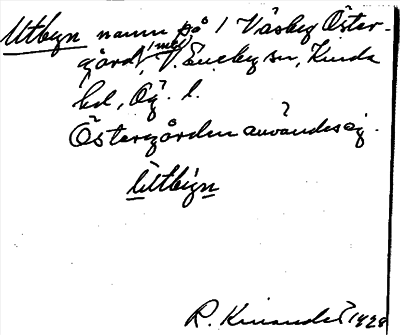 Utbyn namn på 1 Väsby Öster-
gård, 1 mtl, V. Eneby sn, Kinda
hd, Ög. l.
Östergården användes ej.
ùtby̆n
R. Kinander 1928